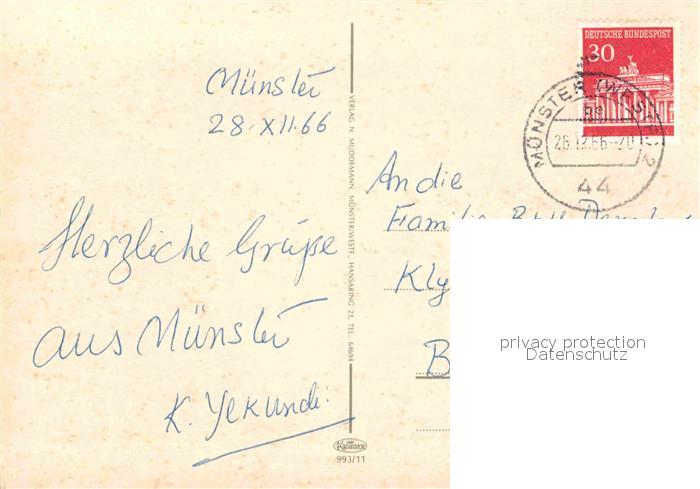 Münster
28.XII.66
Herzliche Grüße
aus Münster
K. Yekundi
VERLAG N. MUDDEMANN, MÜNSTER/WESTF., HANSARING 23, TEL. 64694
KRÜGER
993/11
DEUTSCHE BUNDESPOST
30
MÜNSTER (WESTF) 2
44
An die
Familie
Kly
B
privacy protection
Datenschutz